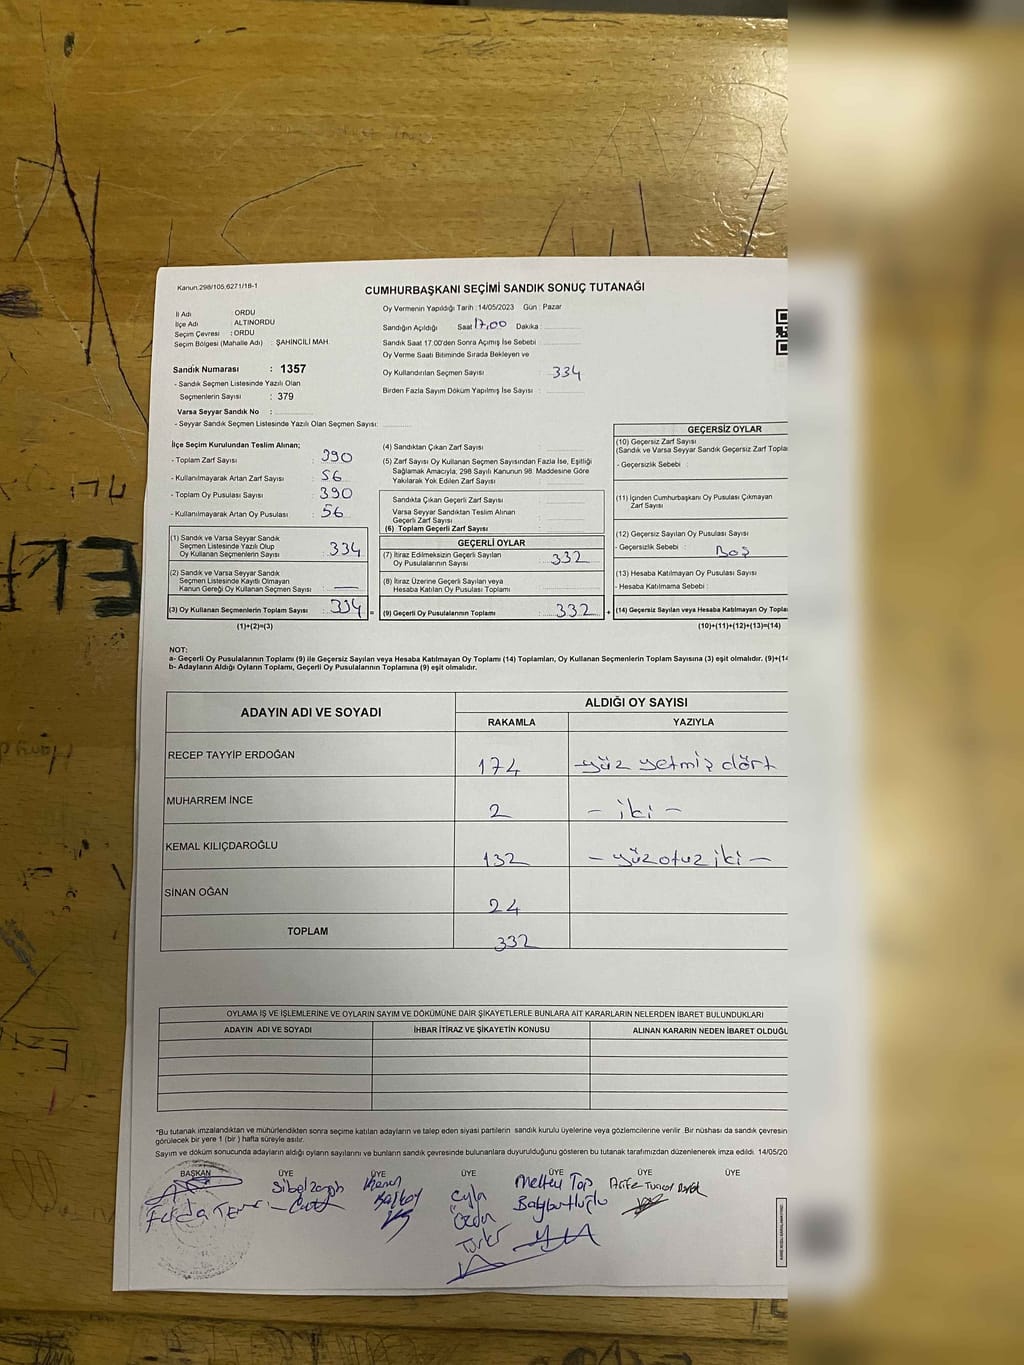 Kanun,298/105,6271/18-1
CUMHURBAŞKANI SEÇİMİ SANDIK SONUÇ TUTANAĞI
İl Adı : ORDU
İlçe Adı : ALTINORDU
Seçim Çevresi : ORDU
Seçim Bölgesi (Mahalle Adı) : ŞAHİNCİLİ MAH.
Oy Vermenin Yapıldığı Tarih : 14/05/2023 Gün : Pazar
Sandığın Açıldığı Saat 17,00 Dakika :
Sandık Saat 17:00'den Sonra Açımış İse Sebebi :
Oy Verme Saati Bitiminde Sırada Bekleyen ve
Oy Kullandırılan Seçmen Sayısı : 334
Birden Fazla Sayım Döküm Yapılmış İse Sayısı :
Sandık Numarası : 1357
- Sandık Seçmen Listesinde Yazılı Olan
Seçmenlerin Sayısı : 379
Varsa Seyyar Sandık No :
- Seyyar Sandık Seçmen Listesinde Yazılı Olan Seçmen Sayısı:
İlçe Seçim Kurulundan Teslim Alınan;
- Toplam Zarf Sayısı : 390
- Kullanılmayarak Artan Zarf Sayısı : 56
- Toplam Oy Pusulası Sayısı : 390
- Kullanılmayarak Artan Oy Pusulası : 56
(1) Sandık ve Varsa Seyyar Sandık
Seçmen Listesinde Yazılı Olup
Oy Kullanan Seçmenlerin Sayısı : 334
(2) Sandık ve Varsa Seyyar Sandık
Seçmen Listesinde Kayıtlı Olmayan
Kanun Gereği Oy Kullanan Seçmen Sayısı : —
(3) Oy Kullanan Seçmenlerin Toplam Sayısı : 334 =
(1)+(2)=(3)
(4) Sandıktan Çıkan Zarf Sayısı
(5) Zarf Sayısı Oy Kullanan Seçmen Sayısından Fazla İse, Eşitliği
Sağlamak Amacıyla; 298 Sayılı Kanunun 98. Maddesine Göre
Yakılarak Yok Edilen Zarf Sayısı
Sandıkta Çıkan Geçerli Zarf Sayısı
Varsa Seyyar Sandıktan Teslim Alınan
Geçerli Zarf Sayısı
(6) Toplam Geçerli Zarf Sayısı
GEÇERLİ OYLAR
(7) İtiraz Edilmeksizin Geçerli Sayılan
Oy Pusulalarının Sayısı : 332
(8) İtiraz Üzerine Geçerli Sayılan veya
Hesaba Katılan Oy Pusulası Toplamı
(9) Geçerli Oy Pusulalarının Toplamı : 332 +
GEÇERSİZ OYLAR
(10) Geçersiz Zarf Sayısı
(Sandık ve Varsa Seyyar Sandık Geçersiz Zarf Topla
- Geçersizlik Sebebi :
(11) İçinden Cumhurbaşkanı Oy Pusulası Çıkmayan
Zarf Sayısı
(12) Geçersiz Sayılan Oy Pusulası Sayısı
- Geçersizlik Sebebi : Boş
(13) Hesaba Katılmayan Oy Pusulası Sayısı
- Hesaba Katılmama Sebebi :
(14) Geçersiz Sayılan veya Hesaba Katılmayan Oy Topla
(10)+(11)+(12)+(13)=(14)
NOT:
a- Geçerli Oy Pusulalarının Toplamı (9) ile Geçersiz Sayılan veya Hesaba Katılmayan Oy Toplamı (14) Toplamları, Oy Kullanan Seçmenlerin Toplam Sayısına (3) eşit olmalıdır. (9)+(14
b- Adayların Aldığı Oyların Toplamı, Geçerli Oy Pusulalarının Toplamına (9) eşit olmalıdır.
ADAYIN ADI VE SOYADI
ALDIĞI OY SAYISI
RAKAMLA YAZIYLA
RECEP TAYYİP ERDOĞAN 174 -yüz yetmiş dört
MUHARREM İNCE 2 - iki -
KEMAL KILIÇDAROĞLU 132 - yüzotuz iki -
SİNAN OĞAN 24
TOPLAM 332
OYLAMA İŞ VE İŞLEMLERİNE VE OYLARIN SAYIM VE DÖKÜMÜNE DAİR ŞİKAYETLERLE BUNLARA AİT KARARLARIN NELERDEN İBARET BULUNDUKLARI
ADAYIN ADI VE SOYADI İHBAR İTİRAZ VE ŞİKAYETİN KONUSU ALINAN KARARIN NEDEN İBARET OLDUĞU
*Bu tutanak imzalandıktan ve mühürlendikten sonra seçime katılan adayların ve talep eden siyasi partilerin sandık kurulu üyelerine veya gözlemcilerine verilir. Bir nüshası da sandık çevresin
görülecek bir yere 1 (bir ) hafta süreyle asılır.
Sayım ve döküm sonucunda adayların aldığı oyların sayılarını ve bunların sandık çevresinde bulunanlara duyurulduğunu gösteren bu tutanak tarafımızdan düzenlenerek imza edildi. 14/05/20
BAŞKAN ÜYE ÜYE ÜYE ÜYE ÜYE ÜYE
Meltem Top
Özden